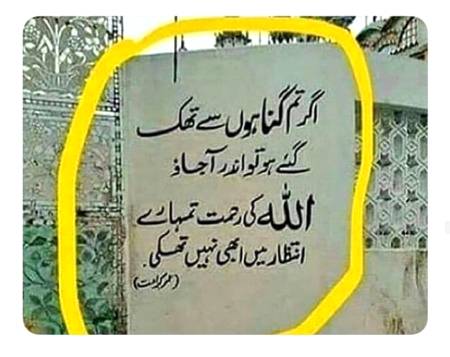 اگر تم گناہوں سے تھک
گئے ہو تو اندر آجاؤ
اللہ کی رحمت تمہارے
انتظار میں ابھی نہیں تھکی